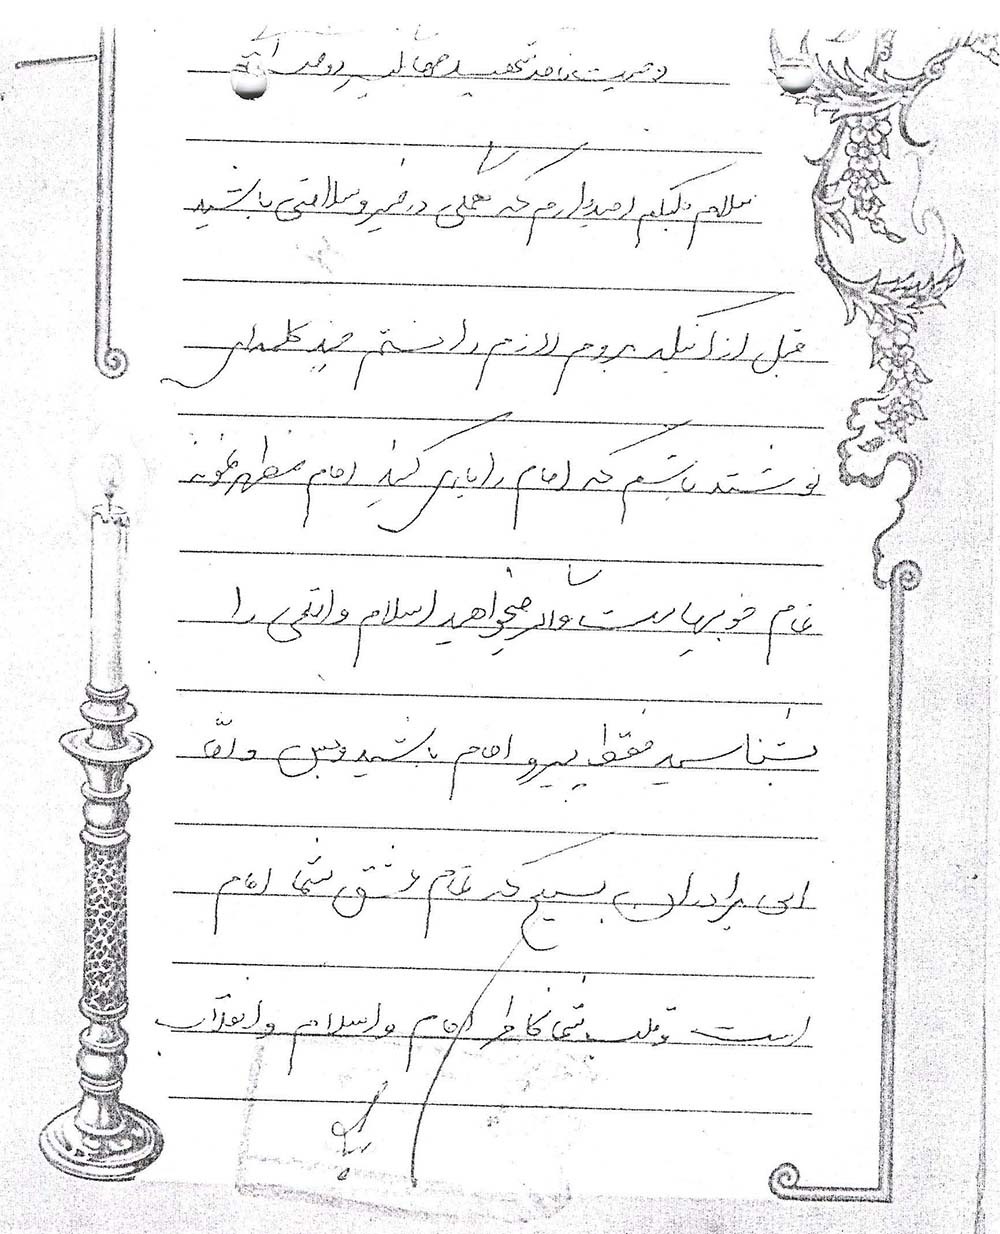 وصیت نامه شهید
سلام علیکم امیدوارم که همگی در خیر و سلامتی باشید
قبل از اینکه بروم لازم دانستم چند کلمه‌ای
نوشته باشم که امام را یاری کنید امام مظهر نمونه
تمام خوبیهاست و اگر میخواهید اسلام واقعی را
بشناسید فقط پیرو امام باشید و بس و امّا
ای برادران بسیج که تمام عشق شما امام
است و قلب شما بخاطر امام و اسلام و انقلاب